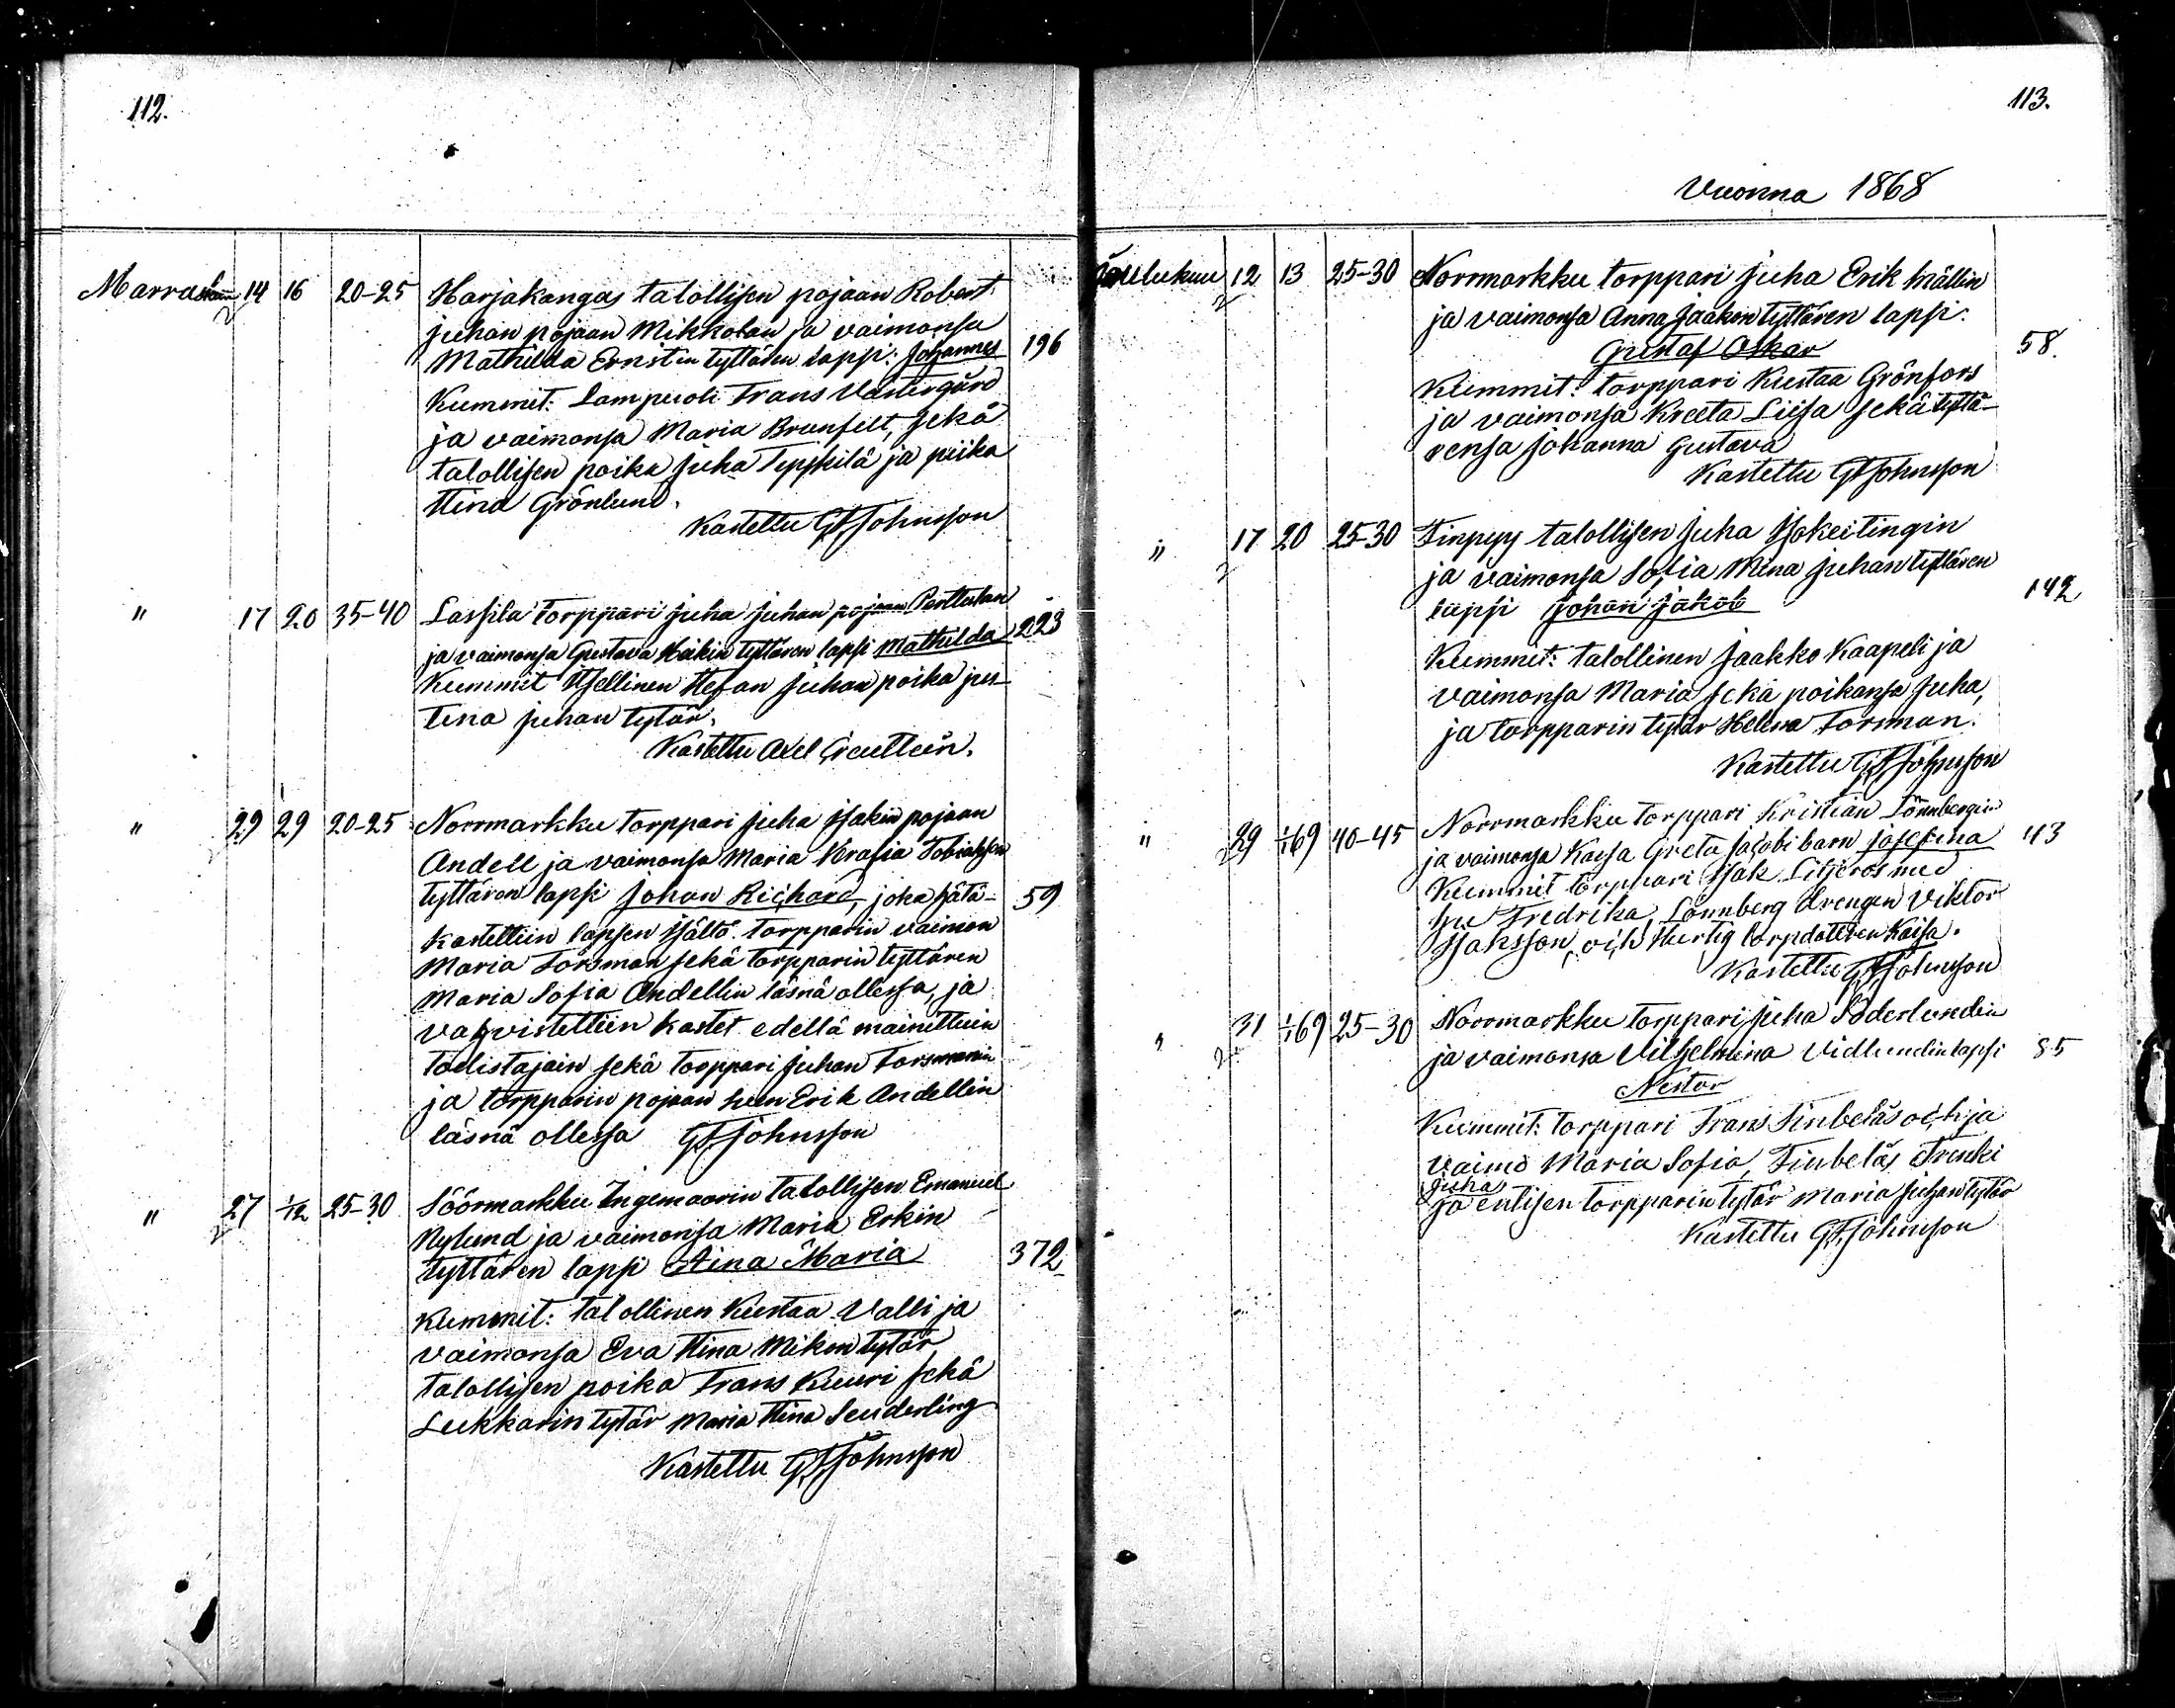 112.
Marraskuu 14 16 20-25 Harjakangas talollisen pojaan Robert
Juhan pojaan Mikkolan ja vaimonsa
Mathilda Ernstin tyttären lapsi: Johannes 196
Kummit: Lampuoti Frans Västergård
ja vaimonsa Maria Brunfelt, sekä
talollisen poika Juha Teppilä ja piika
Stina Grönlund.
Kastettu GFJohnsson
" 17 20 35-40 Lassila torppari Juha Juhan pojaan Perttulan
ja vaimonsa Gustava Heikin tyttären lapsi Mathilda 223
Kummit Itsellinen Stefan Juhan poika jus
tina Juhan tytär.
Kastettu Axel
" 29 29 20-25 Norrmarkku torppari Juha Isakin pojaan
Andell ja vaimonsa Maria Tobiaksen
tyttären lapsi Johan Richard, joka hätä-
59
kastettiin lapsen Isältä torpparin vaimon
Maria Forsman sekä torpparin tyttären
Maria Sofia Andellin läsnä ollessa, ja
vahvistettiin kastet edellä mainittuin
todistajain sekä torppari Juhan Forsmanin
ja torpparin pojaan Sven Erik Andellin
läsnä ollessa GFJohnsson
" 27 1/12 25-30 Söörmarkku Ingemaarin talollisen Emanuel
Nylund ja vaimonsa Maria Erkin
tyttären lapsi Aina Maria 372
Kummit: talollinen Kustaa Valli ja
vaimonsa Eva Stina Mikon tytär,
talollisen poika Frans Kuuri sekä
Lukkarin tytär Maria Stina Seuderling
Kastettu GFJohnsson
113.
Vuonna 1868
Joulukuu 12 13 25-30 Norrmarkku torppari Juha Erik Mällin
ja vaimonsa Anna Jaakon tyttären lapsi:
Gustaf Oskar 58.
Kummit: torppari Kustaa Grönfors
ja vaimonsa Kreeta Liisa sekä tyttä-
rensa Johanna Gustava
Kastettu GFJohnsson
" 17 20 25-30 Finpyy talollisen Juha Isokeitingin
ja vaimonsa Sofia Mina Juhan tyttären
lapsi Johan Jakob 142
Kummit: talollinen Jaakko Kaapeli ja
vaimonsa Maria sekä poikansa Juha,
ja torpparin tytär Helena Forsman.
Kastettu GFJohnsson
" 29 1/1 69 40-45 Norrmarkku torppari Kristian Lönnbergin
ja vaimonsa Kaisa Greta Jacobi barn Josefina 43
Kummit torppari Isak Liljeros med
hu Fredrika, Lönnberg drengen Viktor
Isaksson, och Hurtig torpdotteren Kaisa.
Kastettu GFJohnsson
" 31 1/1 69 25-30 Norrmarkku torppari Juha Söderlundin
ja vaimonsa Vilhelmina Vidlundin lapsi 85
Nestor
Kummit: torppari Frans Finbeläs och ja
vaimo Maria Sofia Finbeläs Trenki
Juha
ja entisen torpparin tytär Maria Juhan tytär
Kastettu GFJohnsson